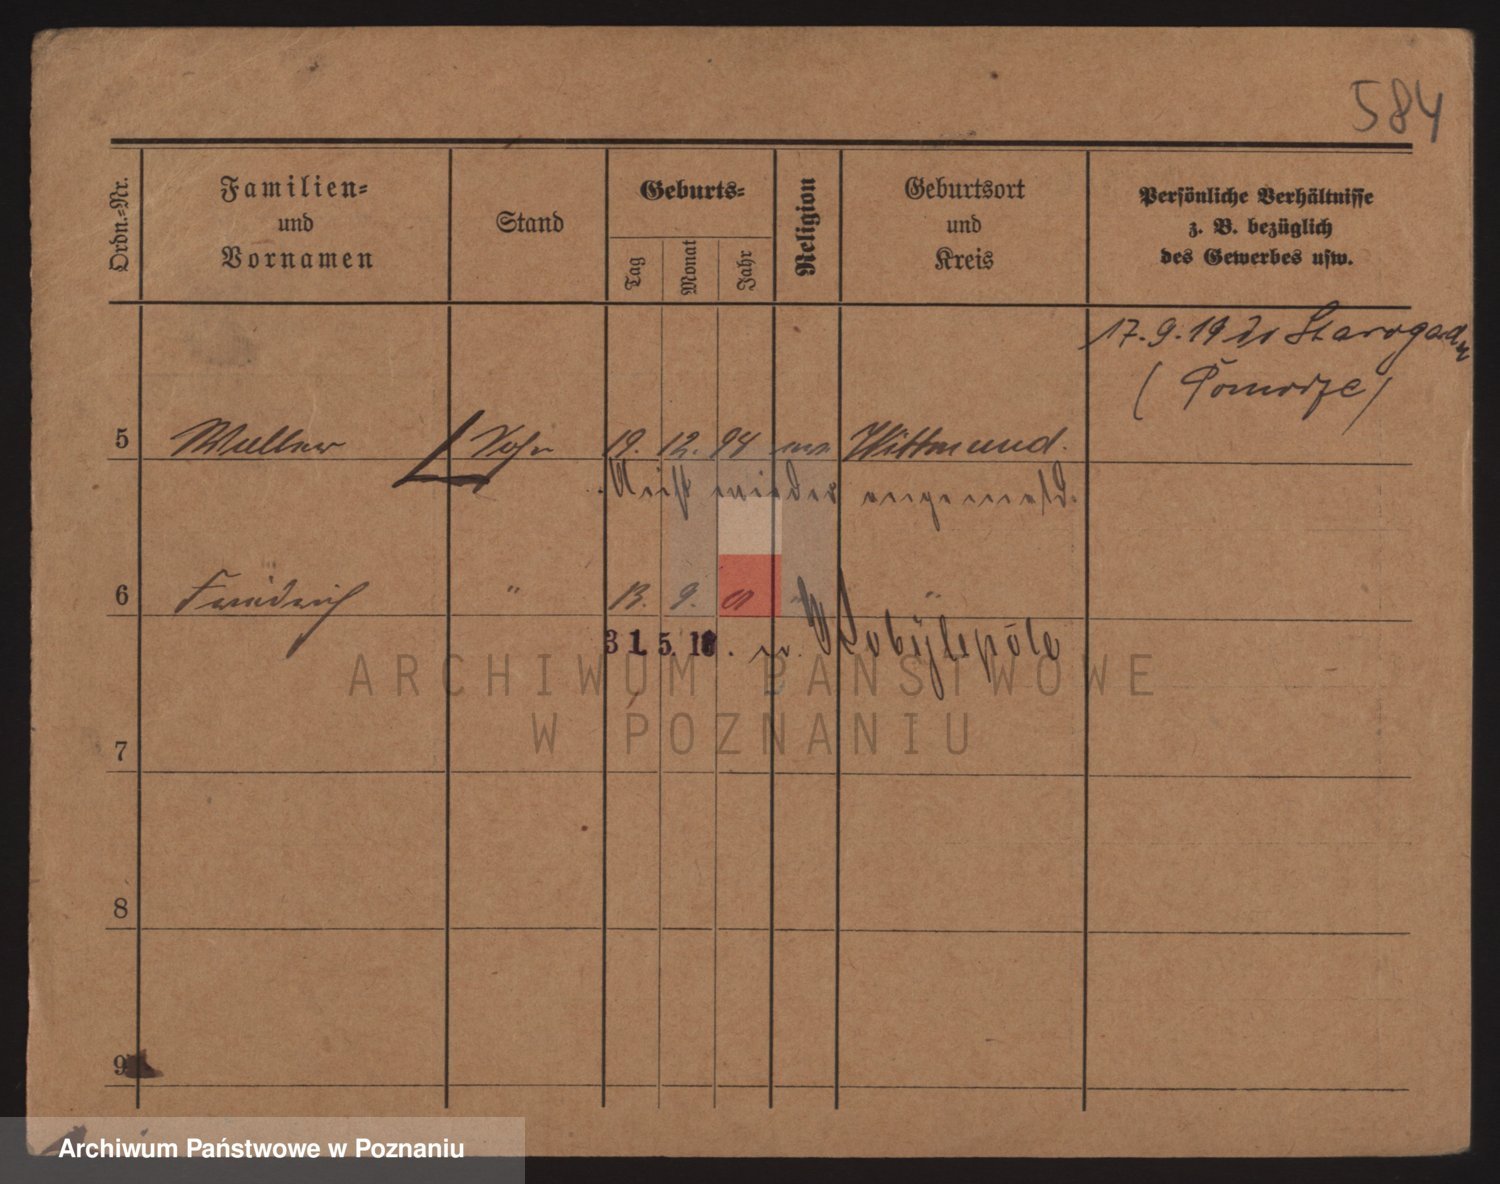 584
Ordn.-Nr.
Familien-
und
Vornamen
Stand
Geburts-
Tag
Monat
Jahr
Religion
Geburtsort
und
Kreis
Persönliche Verhältnisse
z. B. bezüglich
des Gewerbes usw.
17.9.19
(Pomorze)
5 Sohn 19. 12. 94 Wittmund.
wieder angemeld.
6 Friedrich " 13. 9. 01 "
31. 5. 18. n. Kobylepole
7
8
9
ARCHIWUM PAŃSTWOWE
W POZNANIU
Archiwum Państwowe w Poznaniu